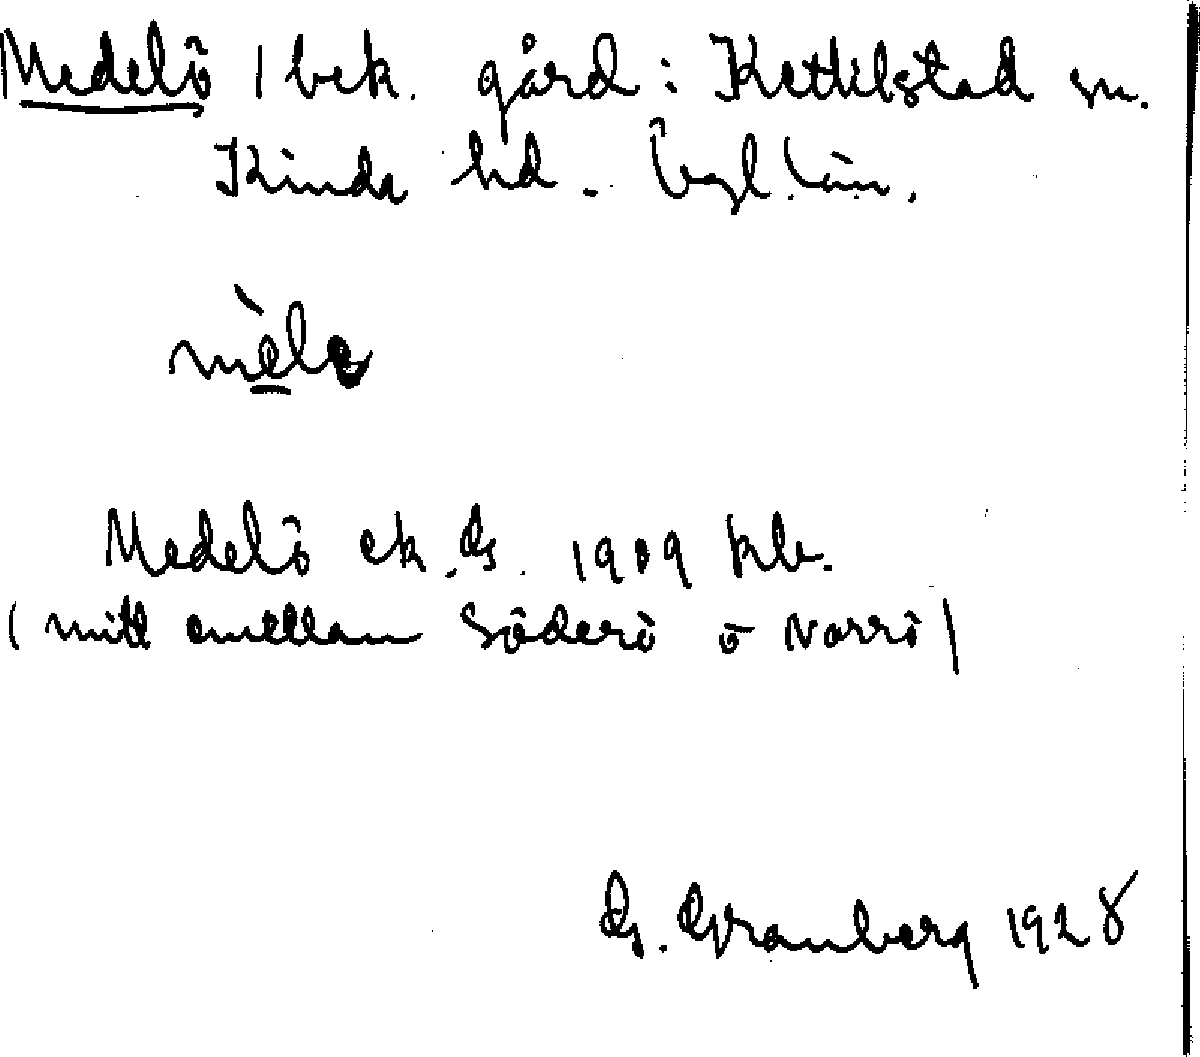 Medelö / bek. gård i Kettilstad sn.
Kinda hd. Ögl. län.
mèle
Medelö ek. G. 1909 kb.
(mitt emellan Söderö o Norrö)
G. Granberg 1928